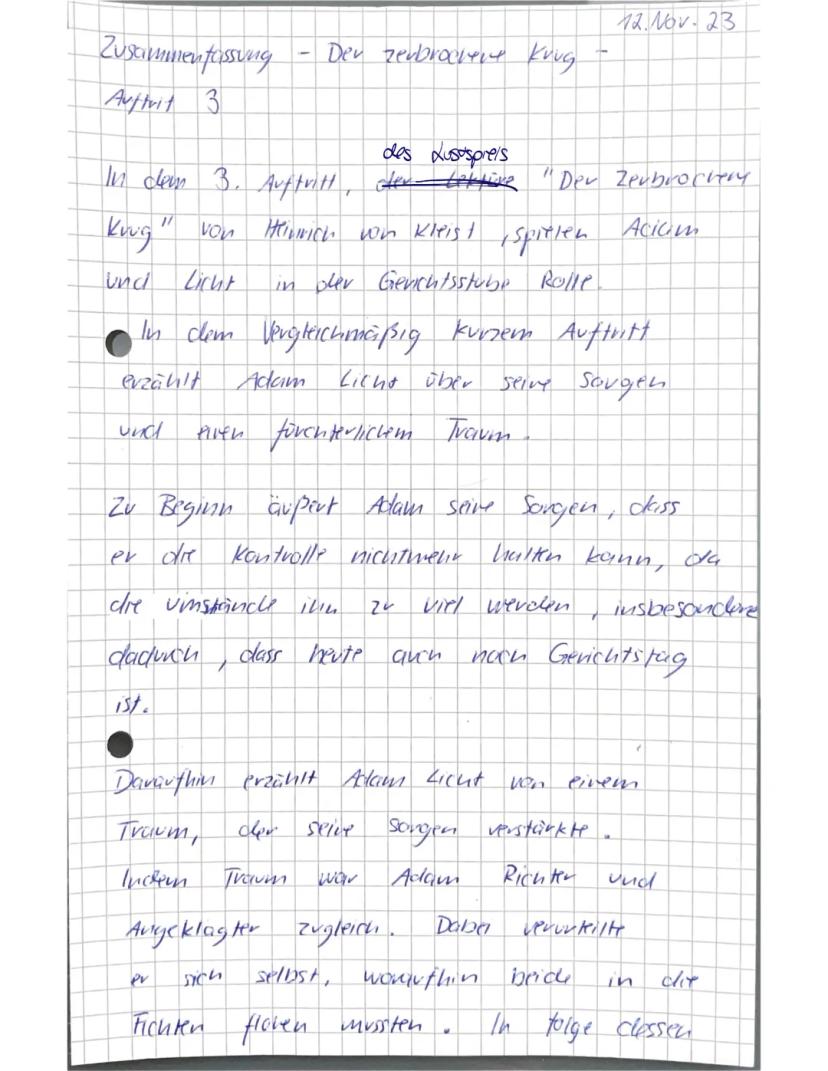 12. Nov. 23
Zusammenfassung - Der zerbrochene Krug -
Auftrit 3
des Lustspreis
In dem 3. Auftritt, der Lektüre "Der Zerbrochene
Krug" von Heinrich von Kleist, spielen Adam
und Licht in der Gerichtsstube Rolle.
In dem Vergleichmäßig kurzem Auftritt
erzählt Adam Licht über seine Sorgen
und einen fürchterlichem Traum.
Zu Beginn äußert Adam seine Sorgen, dass
er die Kontrolle nichtmehr halten kann, da
die Umstände ihm zu viel werden, insbesondere
dadurch, dass heute auch noch Gerichtstag
ist.
Daraufhin erzählt Adam Licht von einem
Traum, der seine Sorgen verstärkte.
Indem Traum war Adam Richter und
Angeklagter zugleich. Dabei verurteilte
er sich selbst, woraufhin beide in die
Fichten flohen mussten. In folge dessen